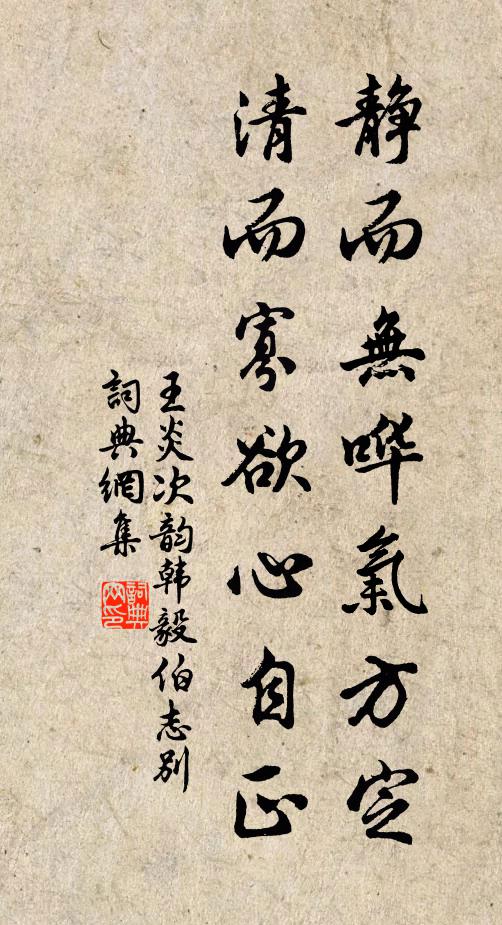 靜而無哗氣方定
清而寡欲心自正
王炎次韵韩毅伯志别
詞典網集
詞典
网印